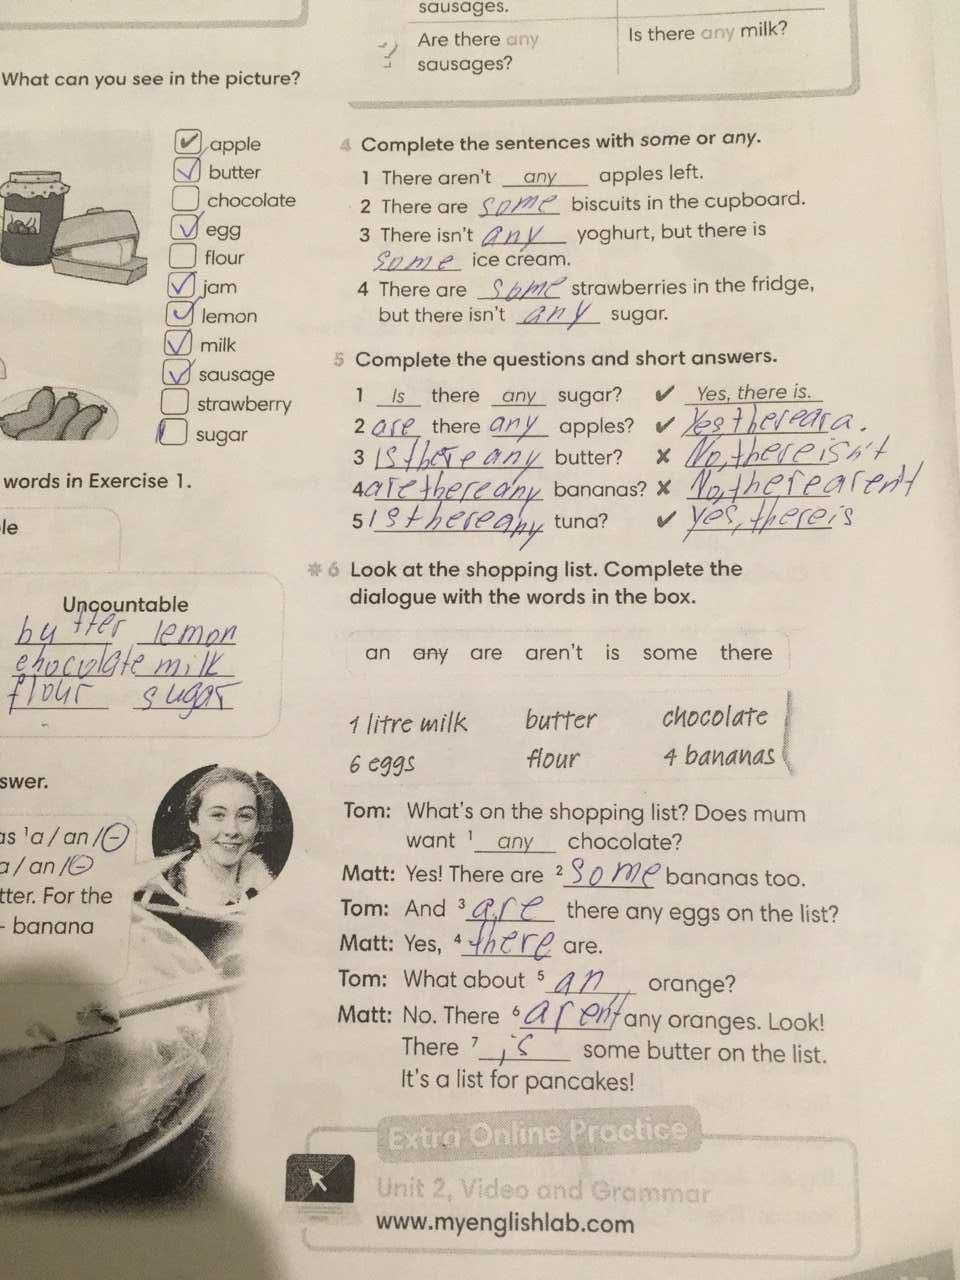 sausages.
Are there any
sausages?
Is there any milk?
What can you see in the picture?
apple
butter
chocolate
egg
flour
jam
lemon
milk
sausage
strawberry
sugar
words in Exercise 1.
le
Uncountable
butter lemon
chocolate milk
flour sugar
swer.
as 1 a / an / –
a / an / –
tter. For the
- banana
4 Complete the sentences with some or any.
1 There aren't any apples left.
2 There are some biscuits in the cupboard.
3 There isn't any yoghurt, but there is
some ice cream.
4 There are some strawberries in the fridge,
but there isn't any sugar.
5 Complete the questions and short answers.
1 Is there any sugar? ✔ Yes, there is.
2 are there any apples? ✔ Yes there ara.
3 Is there any butter? ✘ No, there isn't
4 are there any bananas? ✘ No, there arent
5 Is there any tuna? ✔ yes, there is
* 6 Look at the shopping list. Complete the
dialogue with the words in the box.
an any are aren't is some there
1 litre milk butter chocolate
6 eggs flour 4 bananas
Tom: What's on the shopping list? Does mum
want 1 any chocolate?
Matt: Yes! There are 2 some bananas too.
Tom: And 3 are there any eggs on the list?
Matt: Yes, 4 there are.
Tom: What about 5 an orange?
Matt: No. There 6 arent any oranges. Look!
There 7 is some butter on the list.
It's a list for pancakes!
Extra Online Practice
Unit 2, Video and Grammar
www.myenglishlab.com